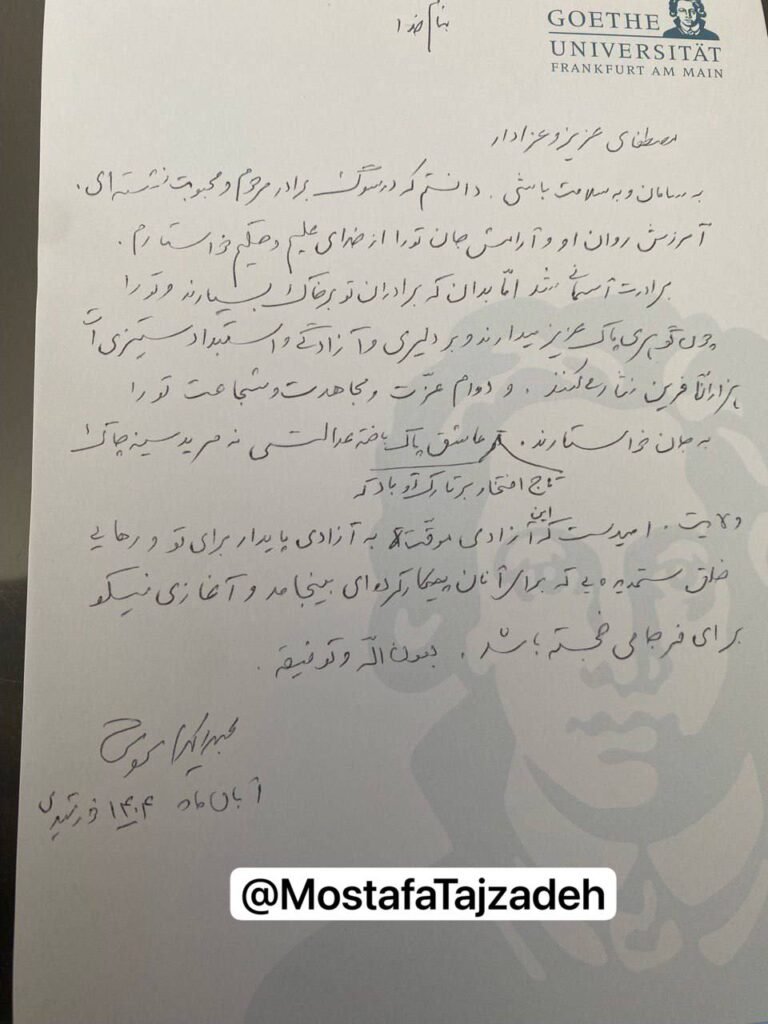 بنام خدا
GOETHE
UNIVERSITÄT
FRANKFURT AM MAIN
مصطفای عزیز و عزادار
به سامان و به سلامت باشی. دانستم که در سوگ برادر مرحوم و محبوبت نشسته‌ای.
آمرزش روان او و آرامش جان تو را از خدای علیم و حکیم خواستارم.
برادرت آسمانی شد اما بدان که برادران تو بر خاک بسیارند و تو را
چون گوهری پاک عزیز میدارند و بر دلیری و آزادگی و استبداد ستیزی ات
هزاران آفرین نثار می‌کنند. و دوام عزّت و مجاهدت و شجاعت تو را
به جان خواستارند. عاشق پاک باخته عدالتی نه مرید سینه چاک
تاج افتخار بر تارک تو باد که
ولایت. امیدست که این آزادی موقت به آزادی پایدار برای تو و رهایی
خلق ستمدیده یی که برای آنان پیکار کرده‌ای بینجامد و آغازی نیکو
برای فرجامی خجسته باشد. بعون الله و توفیقه.
عبدالکریم سروش
آبان ماه ۱۴۰۴ خورشیدی
@MostafaTajzadeh